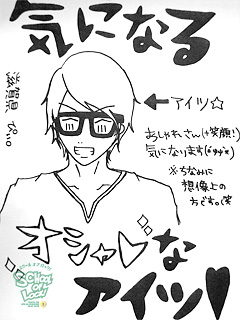 気になる
←アイツ☆
おしゃれさん(+笑顔!)
気になります
※ちなみに
想像上の
方です。笑
滋賀県
オシャレな
アイツ♡
SCHOOL
OF
LOCK!